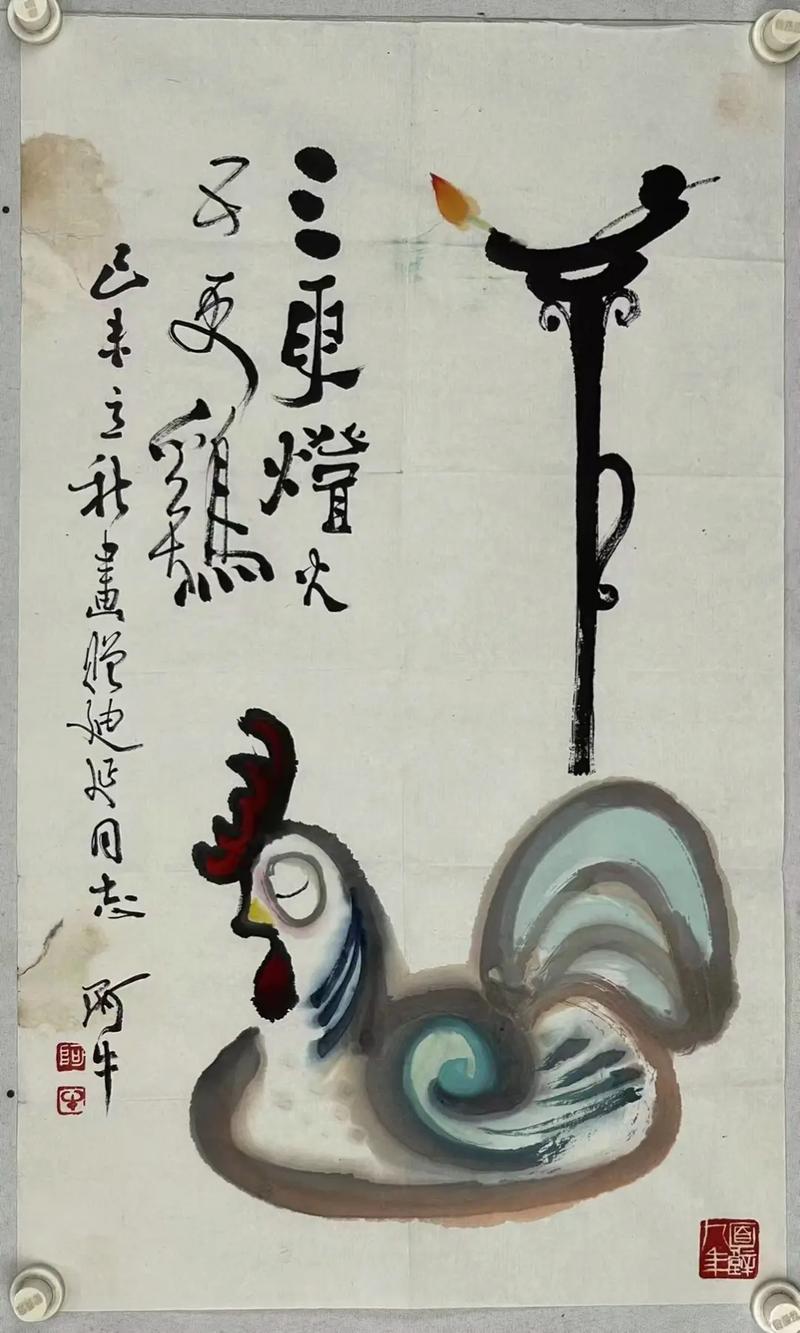 三更燈火
五更鷄
己未立秋畫贈迪同志
阿牛
阿
牛